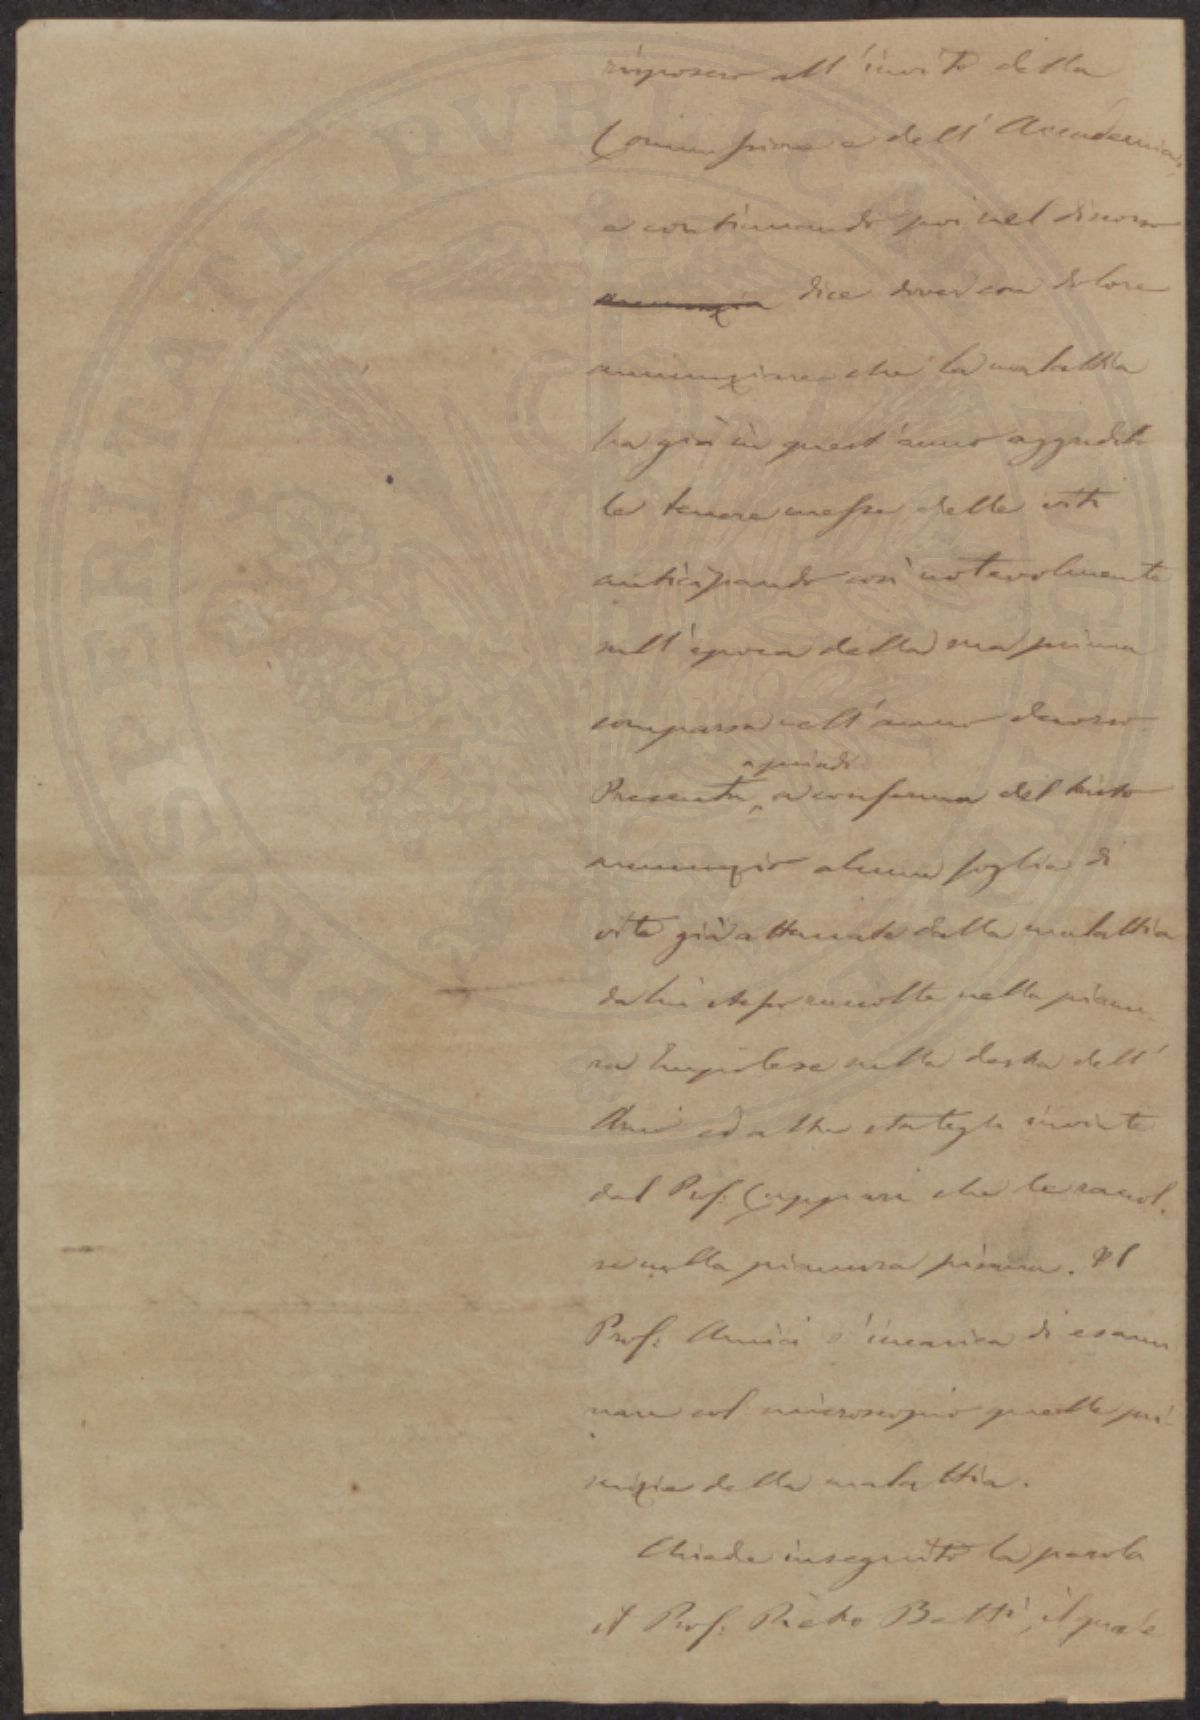 risposero all'invito della
Commissione e dell'Accademia,
e continuando poi nel discorso
annunzia dice dover con dolore
annunziare che la malattia
ha già in quest'anno aggredito
le tenere messe delle viti
anticipando così notevolmente
sull'epoca della sua prima
comparsa nell'anno decorso
quindi
Presenta a conferma del tristo
annunzio alcune foglie di
vite già attaccate dalla malattia
da lui stesso raccolte nella pianu-
ra Empolese sulla destra dell'
Arno ed altre state gli inviate
dal Prof. Cuppari che le raccol-
se nella pianura pisana. Il
Prof. Amici s'incarica di esami
nare col microscopio quelle pri-
mizie della malattia.
Chiede in seguito la parola
il Prof. Pietro Betti, il quale
PROSPERITATI PVBLICAE AVGENDAE